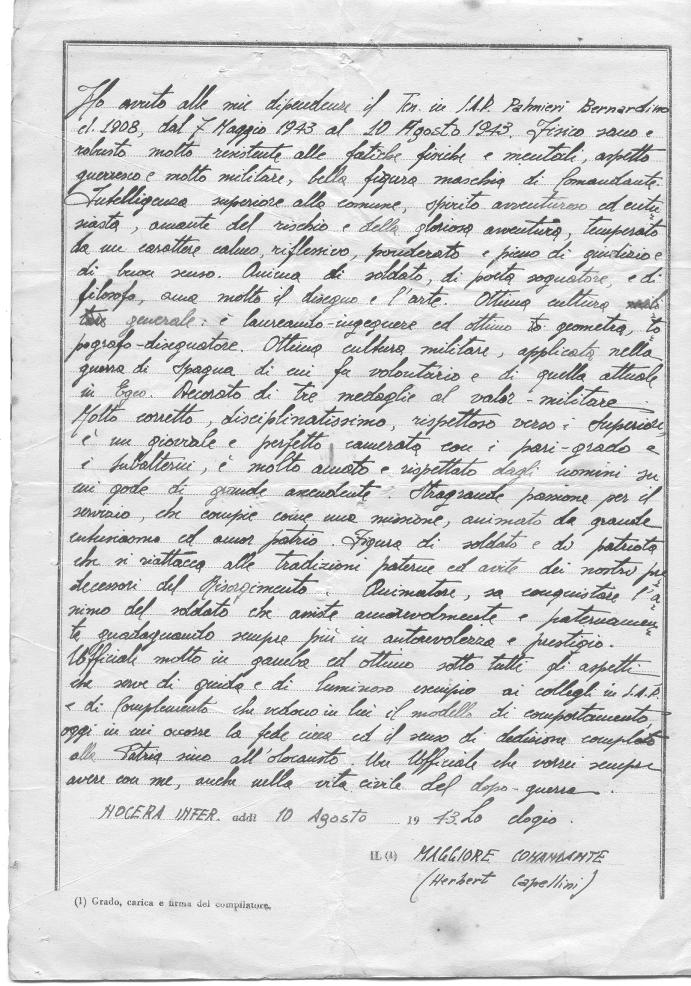 Ho avuto alle mie dipendenze il Ten. in S.A.P. Palmieri Bernardino
cl. 1908, dal 7 Maggio 1943 al 10 Agosto 1943. Fisico sano e
robusto molto resistente alle fatiche fisiche e mentali, aspetto
guerresco e molto militare, bella figura maschia di Comandante.
Intelligenza superiore alla comune, spirito avventuroso ed entu=
siasta, amante del rischio e della gloriosa avventura, temperato
da un carattere calmo, riflessivo, ponderato e pieno di giudizio e
di buon senso. Anima di soldato, di poeta sognatore, e di
filosofo, ama molto il disegno e l'arte. Ottima cultura
generale: è laureando-ingegnere ed ottimo geometra, to
pografo-disegnatore. Ottima cultura militare, applicata nella
guerra di Spagna di cui fu volontario e di quella attuale
in Egeo. Decorato di tre medaglie al valor-militare.
Molto corretto, disciplinatissimo, rispettoso verso i Superiori,
è un gioviale e perfetto camerata con i pari-grado e
i subalterni, è molto amato e rispettato dagli uomini su
cui gode di grande ascendente. Stragrande passione per il
servizio, che compie come una missione, animato da grande
entusiasmo ed amor patrio. Figura di soldato e di patriota
che si riattacca alle tradizioni paterne ed avite dei nostri pre
decessori del Risorgimento. Animatore, sa conquistare l'a=
nimo del soldato che assiste amorevolmente e paternamen=
te guadagnando sempre più in autorevolezza e prestigio.
Ufficiale molto in gamba ed ottimo sotto tutti gli aspetti
che serve di guida e di luminoso esempio ai colleghi in S.A.P.
e di Complemento che vedono in lui il modello di comportamento,
oggi in cui occorre la fede ed il senso di dedizione completo
alla Patria sino all'olocausto. Un Ufficiale che vorrei sempre
avere con me, anche nella vita civile del dopo-guerra.
NOCERA INFER. addì 10 Agosto 19 43. Lo elogio.
IL (1) MAGGIORE COMANDANTE
(Herbert Capellini)
(1) Grado, carica e firma del compilatore.